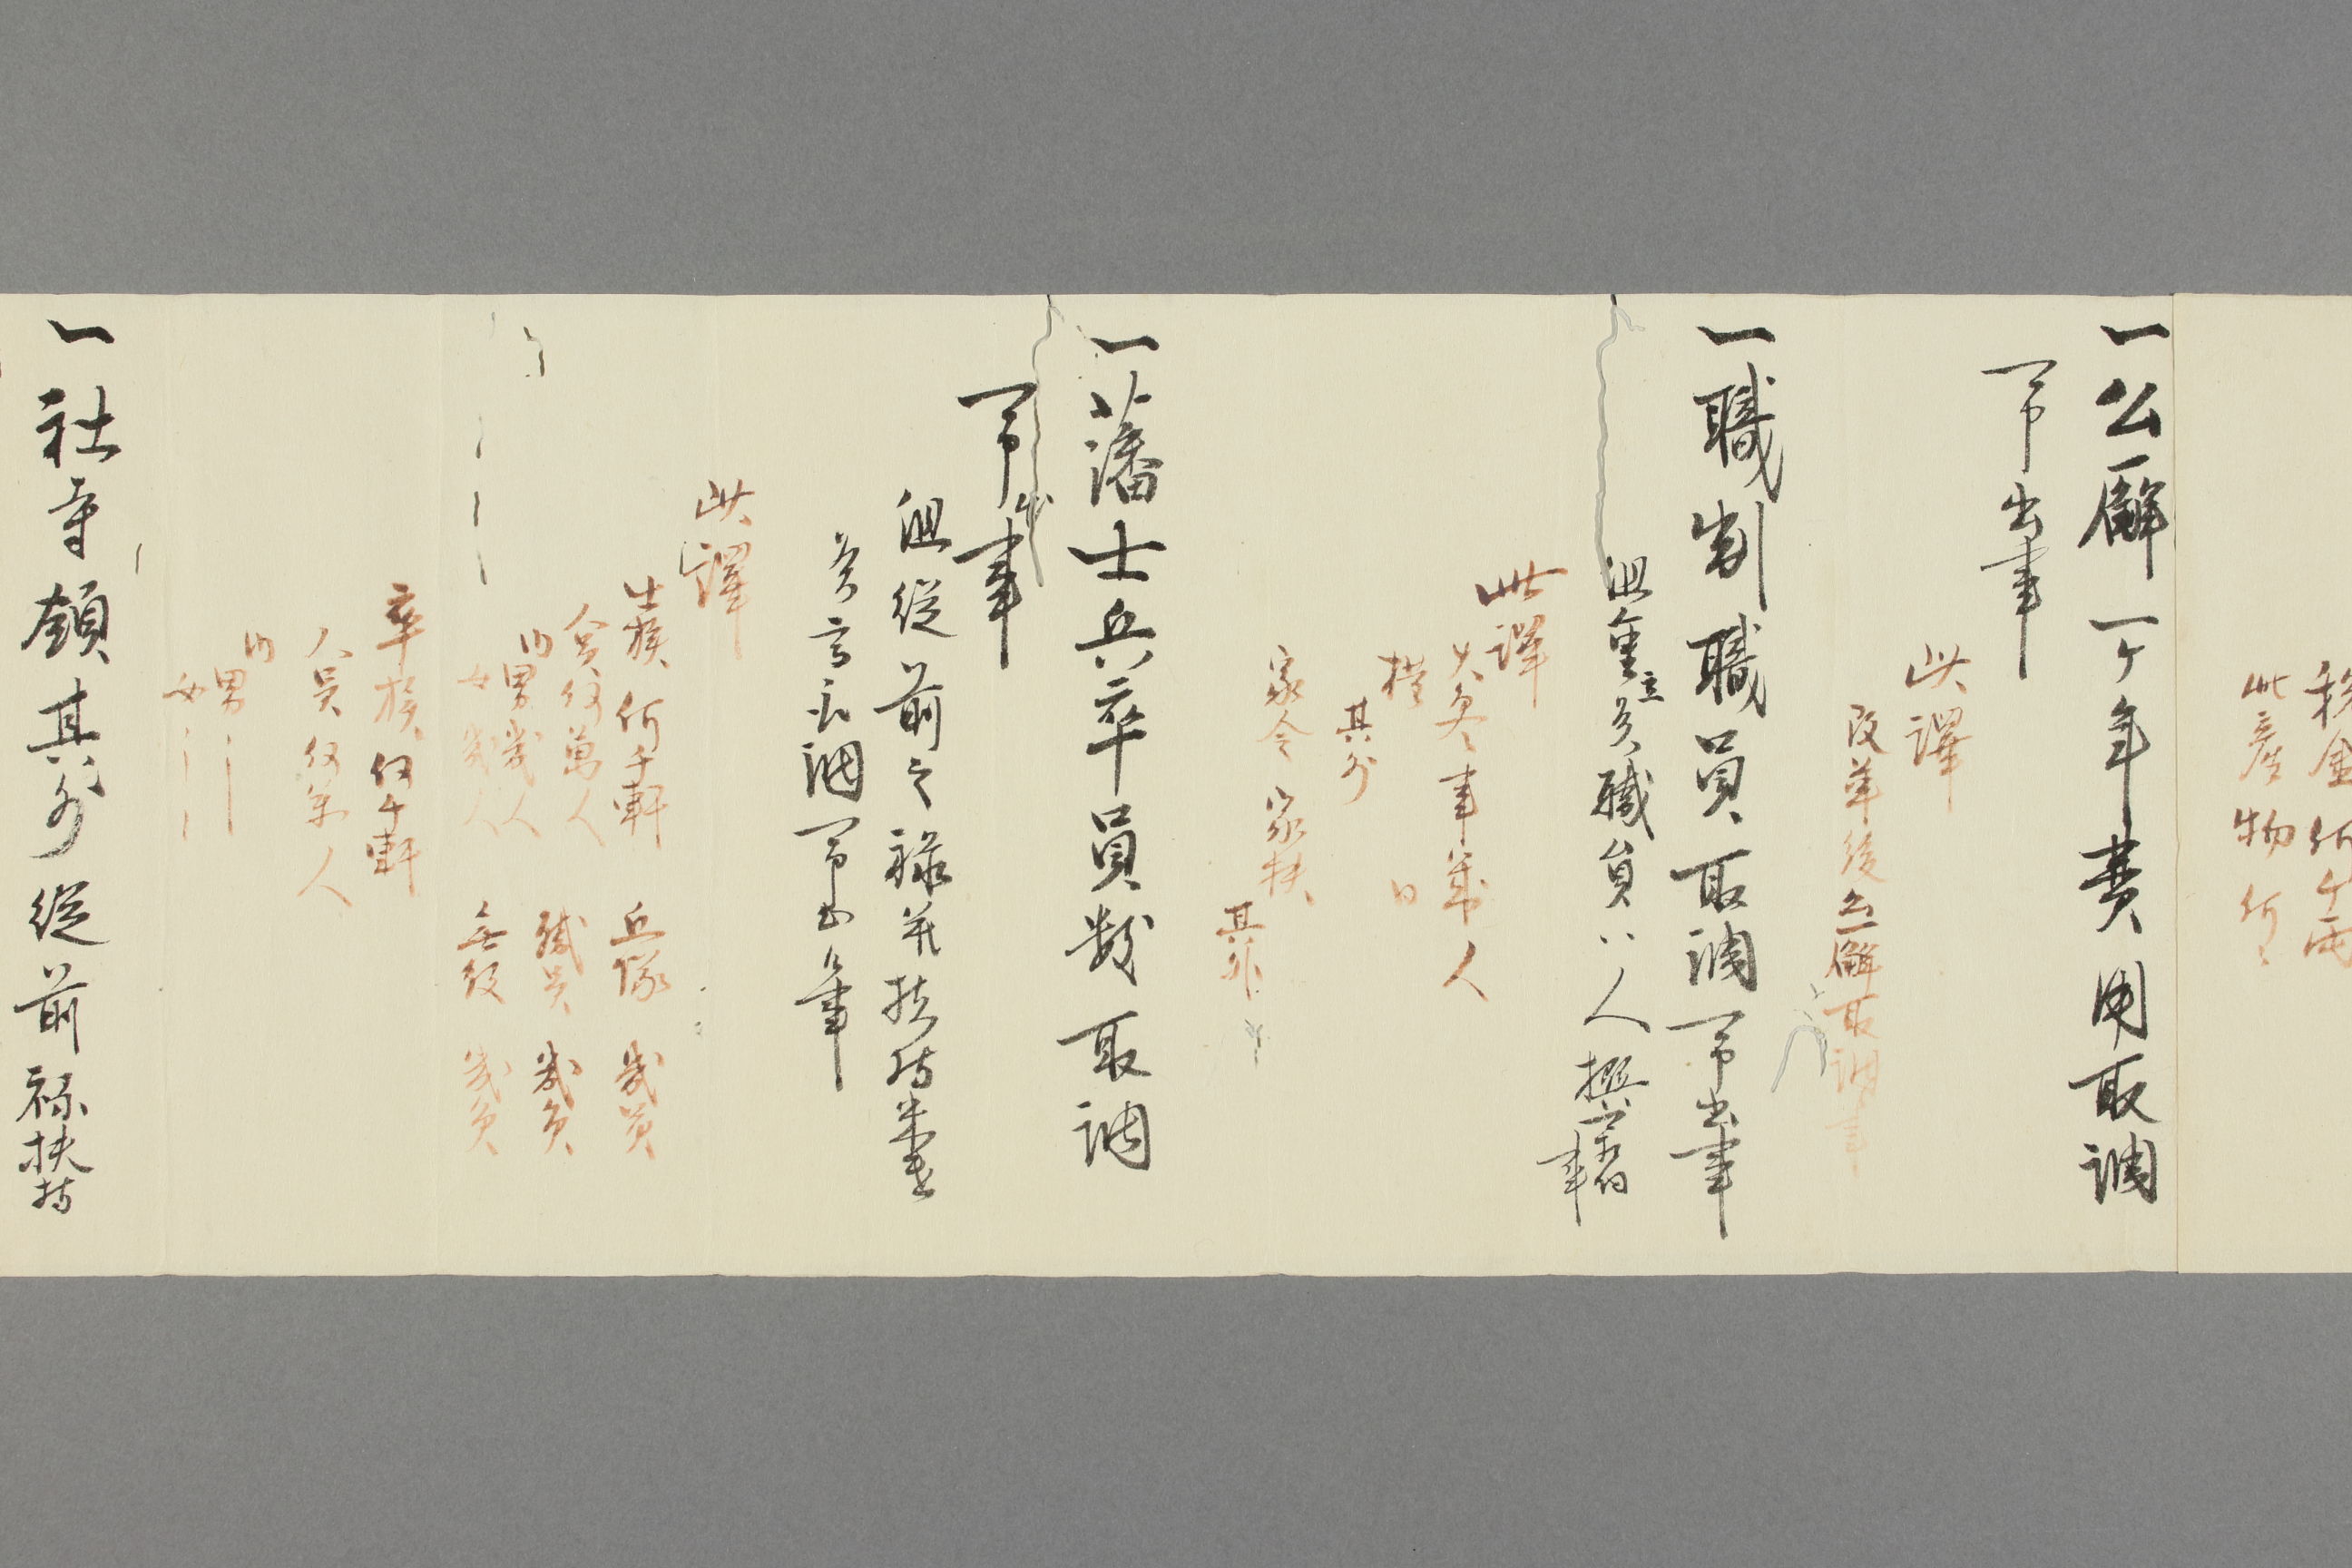 税金何千両
此産物何
一公廨一ケ年費用取調
可出事
此譯
改革後公廨取調事
一職制職員取調可出事
但重立候職員ハ人撰
事
此譯
大参事幾人
権 同
其外
家令 家扶
其外
一藩士兵卒員数取調
可出事
但従前之禄并扶持米
取調可出事
此譯
士族何千軒 兵隊 幾員
人員何萬人
内男幾人 職員 幾員
女幾人 無役 幾員
卒族何千軒
人員何万人
内
男
女
一社寺領其外従前禄扶持